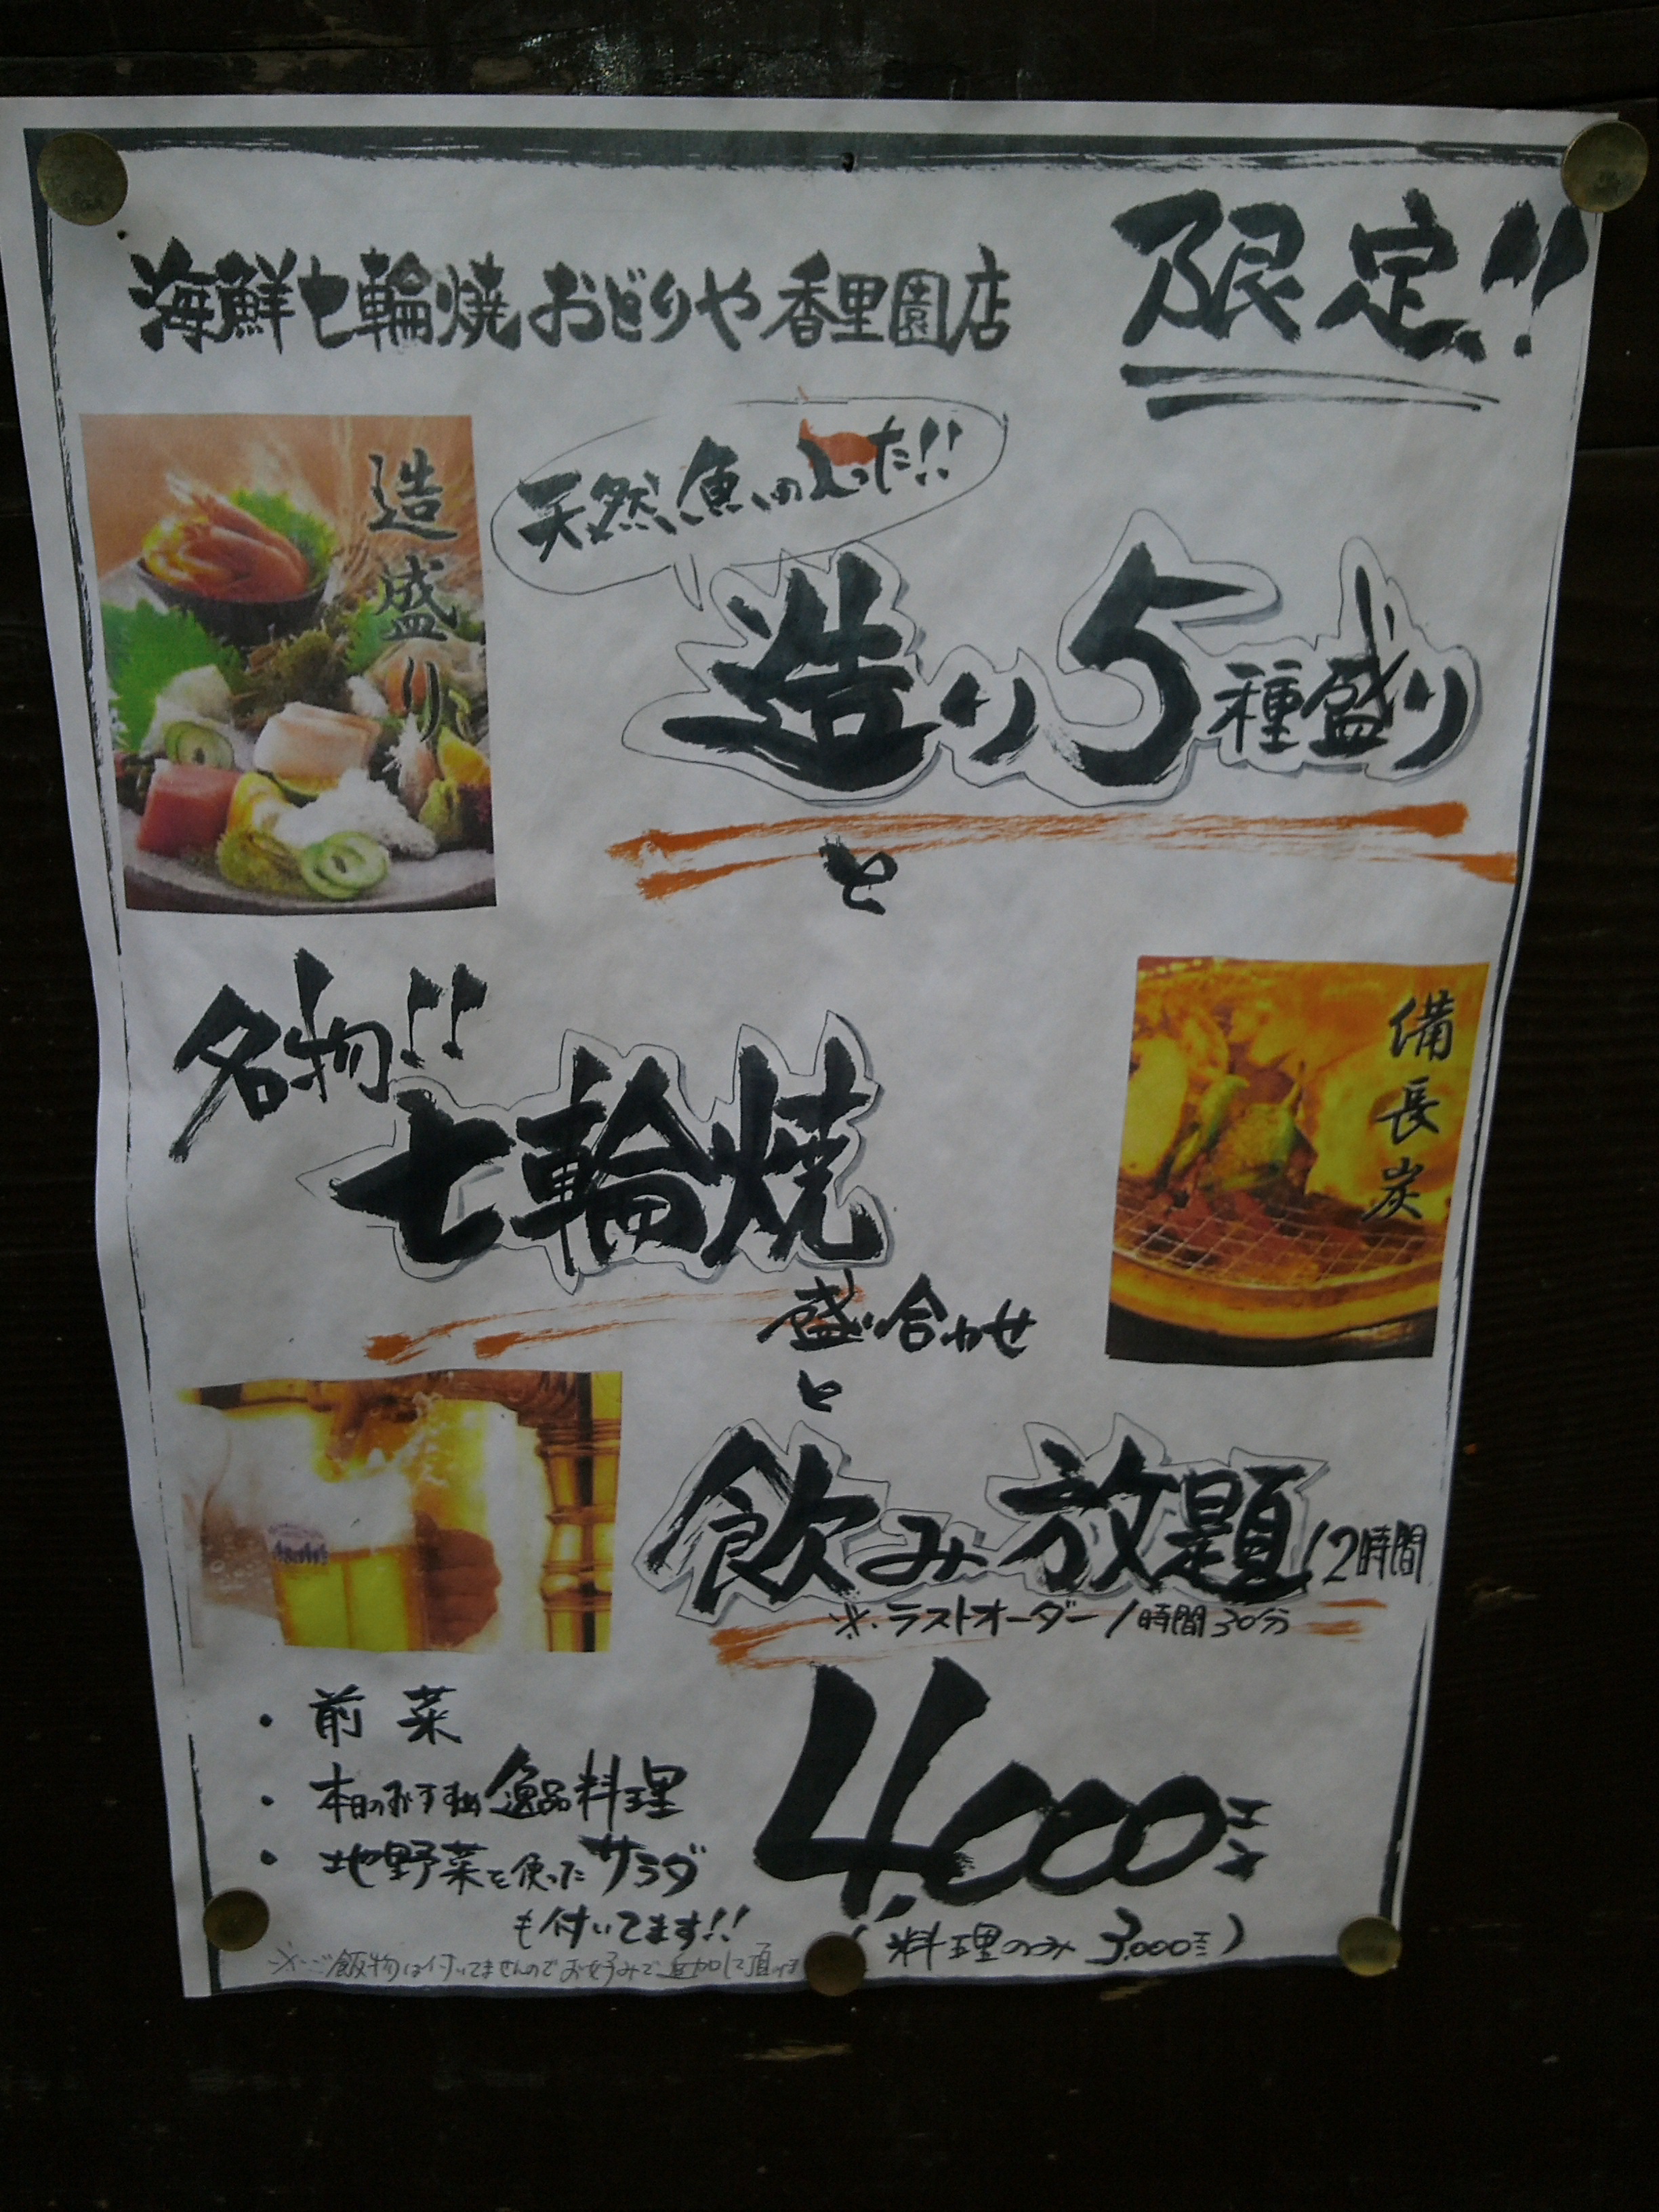 海鮮七輪焼おどりや香里園店
限定!!
天然魚の入った!!
造り5種盛り
造盛り
と
名物!!
七輪焼
盛り合わせ
備長炭
と
飲み放題/2時間
※ラストオーダー1時間30分
Asahi
・前菜
・本日のおすすめ逸品料理
・地野菜を使ったサラダ
も付いてます!!
4,000エン
(料理のみ3,000エン)
※ご飯物は付いてませんのでお好みで追加して頂けます